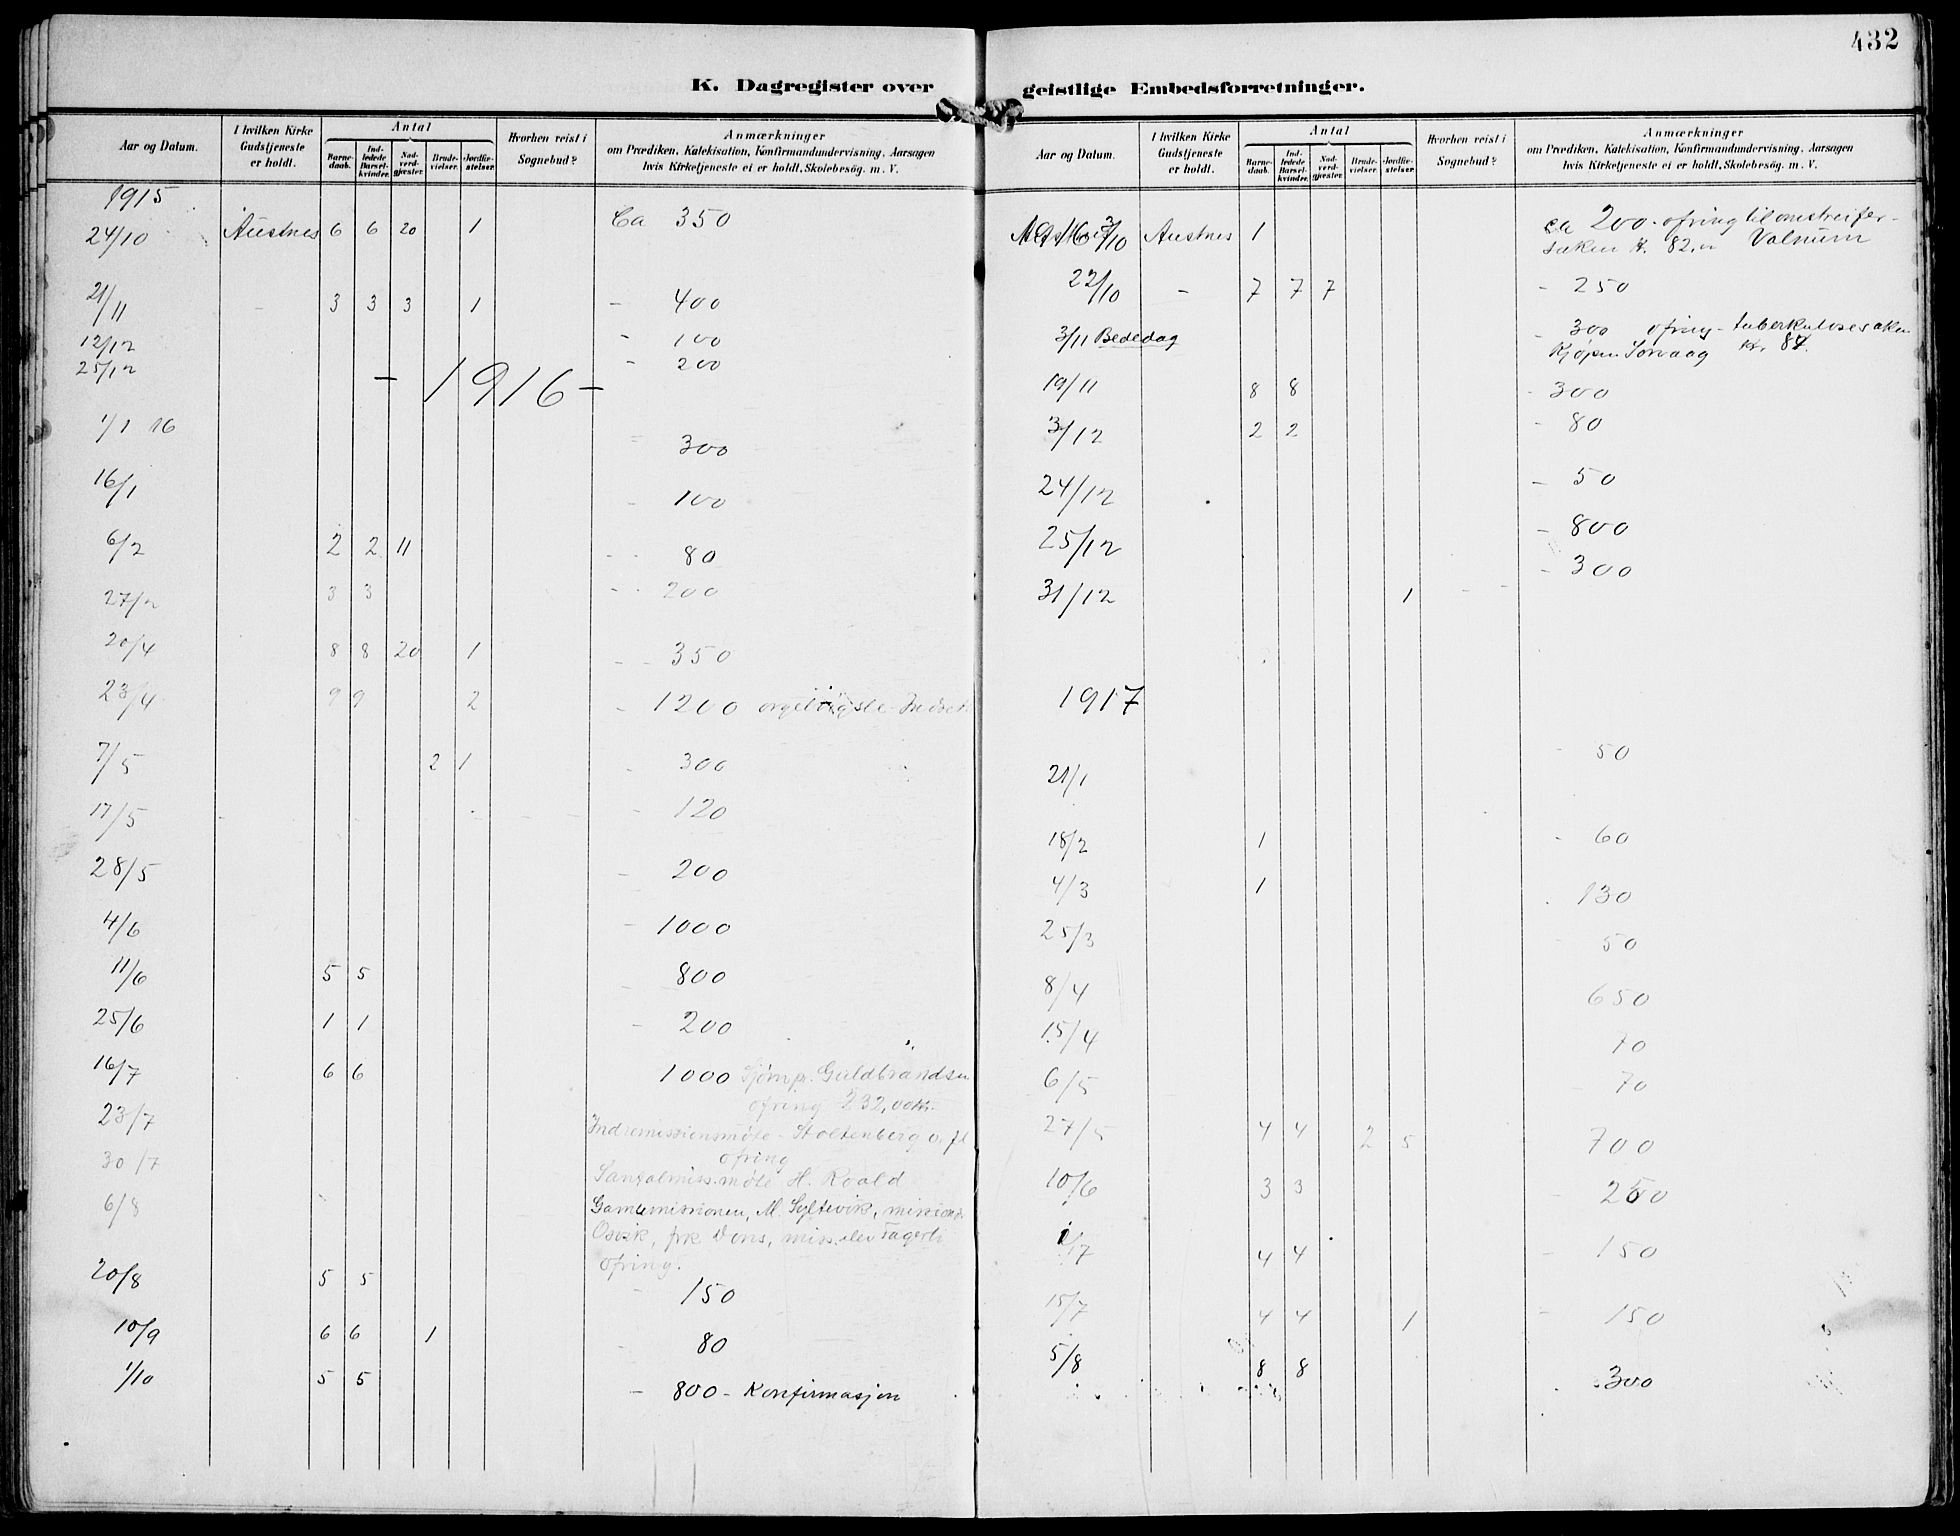 432
K. Dagregister over geistlige Embedsforretninger.
Aar og Datum. I hvilken Kirke Gudstjeneste er holdt. Antal Barnedaab. Indledede Barselkvinder. Nadverdgjæster. Brudevielser. Jordfæstelser. Hvorhen reist i Sognebud? Anmærkninger
om Prædiken, Katekisation, Konfirmandundervisning, Aarsagen
hvis Kirketjeneste ei er holdt, Skolebesög. m. V.
1915
24/10 Austnes 6 6 20 1 Ca 350
21/11 - 3 3 3 1 - 400
12/12 - 100
25/12 - 200
- 1916 -
1/1 16 - 300
16/1 - 100
6/2 2 2 11 - 80
27/2 3 3 - 200
20/4 8 8 20 1 - 350
23/4 9 9 2 - 1200
7/5 2 1 - 300
17/5 - 120
28/5 - 200
4/6 - 1000
11/6 5 5 - 800
25/6 1 1 - 200
16/7 6 6 1000 Guldbrandsen
ofring 232,00 kr.
23/7 Indremissionsmöte - Stoltenberg o. fl
ofring
30/7 Santalmiss.möte H. Roald
6/8 Gamlemissionen, M. Syltevik,
Osvik, frk Dons, miss.elev Fagerli
ofring.
20/8 5 5 - 150
10/9 6 6 1 - 80
1/10 5 5 - 800 - Konfirmasjon
Aar og Datum. I hvilken Kirke Gudstjeneste er holdt. Antal Barnedaab. Indledede Barselkvinder. Nadverdgjæster. Brudevielser. Jordfæstelser. Hvorhen reist i Sognebud? Anmærkninger
om Prædiken, Katekisation, Konfirmandundervisning, Aarsagen
hvis Kirketjeneste ei er holdt, Skolebesög. m. V.
Austnes 1 ca 200 - ofring til omstreifer-
saken kr. 82,
22/10 - 7 7 7 - 250
3/11 Bededag - 300 ofring - tuberkulosesaken
kr. 84.
19/11 8 8 - 300
3/12 2 2 - 80
24/12 - 50
25/12 - 800
31/12 1 - 300
1917
21/1 - 50
18/2 1 - 60
4/3 1 - 130
25/3 - 50
8/4 650
15/4 70
6/5 - 70
27/5 4 4 2 5 700
10/6 3 3 - 250
1/7 4 4 - 150
15/7 4 4 1 - 150
5/8 8 8 300